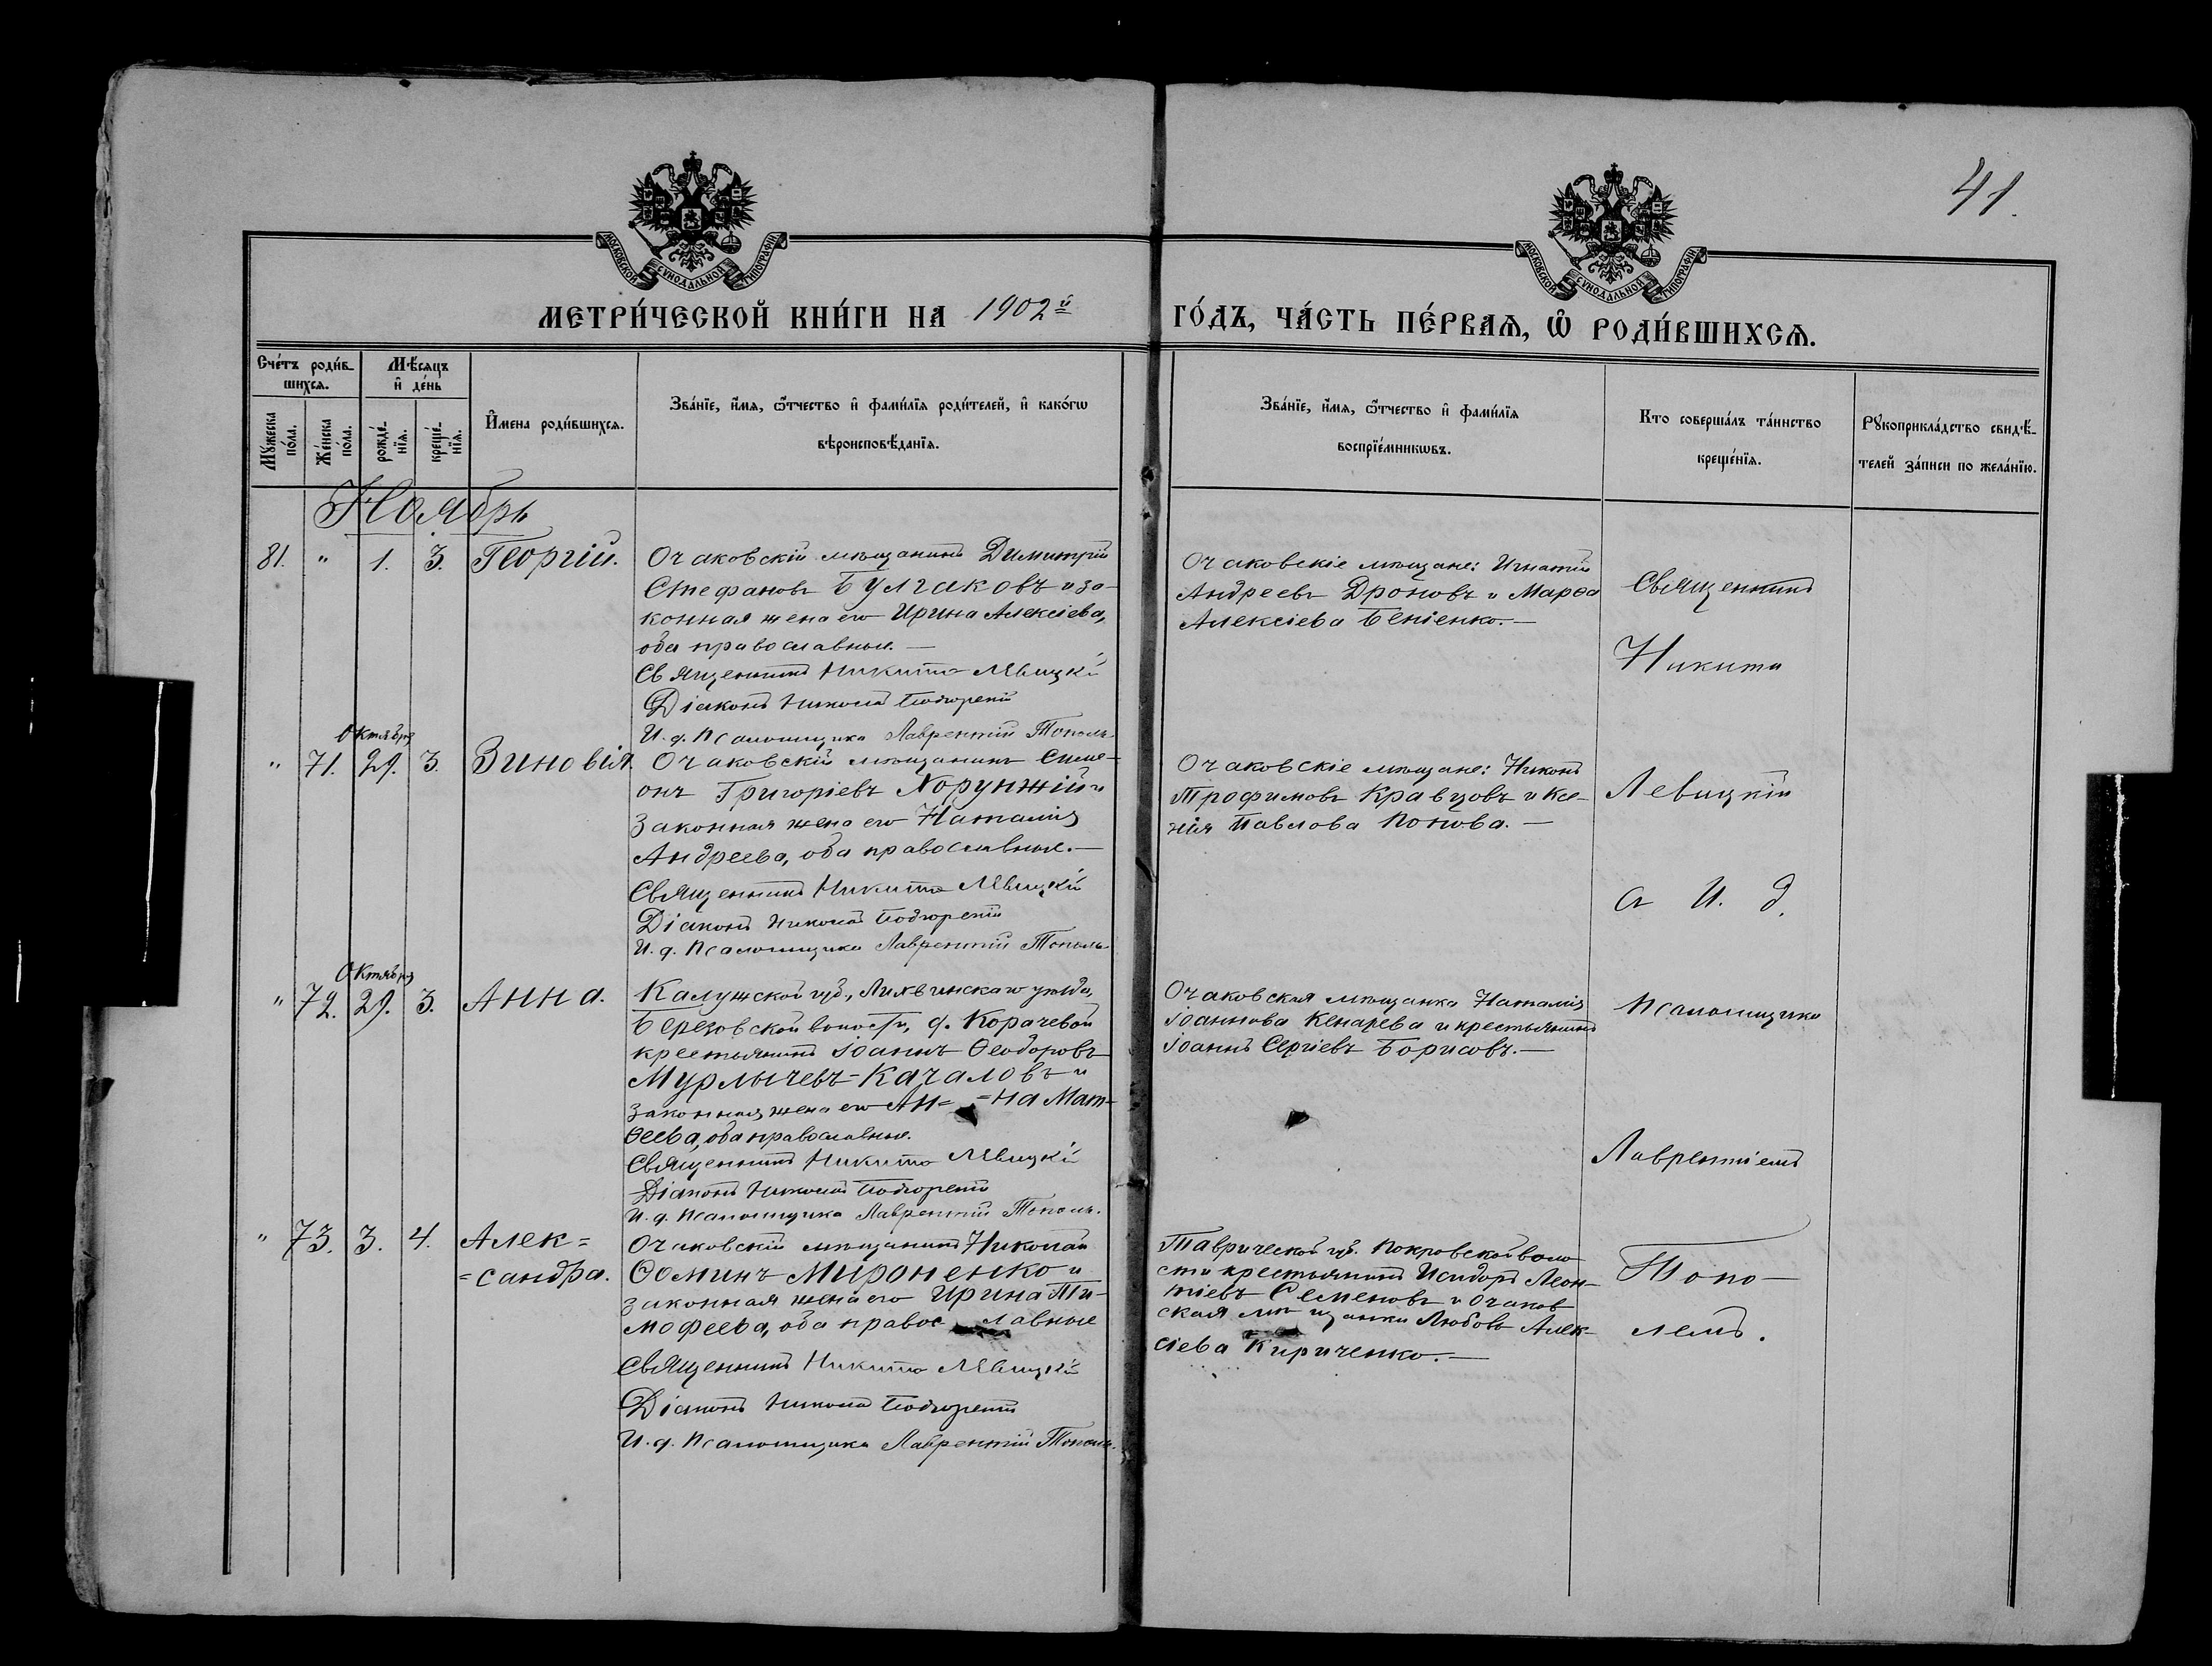 41.
МОСКОВСКОЙ СѴНОДАЛЬНОЙ ТИПОГРАФІИ
МОСКОВСКОЙ СѴНОДАЛЬНОЙ ТИПОГРАФІИ
МЕТРИ́ЧЕСКОЙ КНИ́ГИ НА 1902й ГО́ДЪ, ЧА́СТЬ ПЕ́РВАѦ, Ѡ҆ РОДИ́ВШИХСѦ.
Сче́тъ роди́в-
шихся.
Мѣ́сяцъ
и҆ де́нь
Мꙋ́жеска
по́ла.
Же́нска
по́ла.
рожде́-
нїя.
креще́-
нїя.
И҆мена роди́вшихся.
Зва́нїе, и҆́мя, ѻ҆́тчество и҆ фами́лїя роди́телей, и҆ како́гѡ
вѣроисповѣ́данїя.
Зва́нїе, и҆́мя, ѻ҆́тчество и҆ фами́лїя
воспрїе́мникѡвъ.
Кто соверша́лъ та́инство
креще́нїя.
Рꙋкоприкла́дство свидѣ́-
телей за́писи по жела́нїю.
Ноябрь
81. " 1. 3. Георгій.
Очаковскій мѣщанинъ Димитрій
Стефановъ Булгаковъ и за-
конная жена его Ирина Алексіева,
оба православные.—
Священникъ Никита Левицкій
Діаконъ Николай
И. д. Псаломщика Лаврентій Тополь
Очаковскіе мѣщане: Игнатій
Андреевъ Дроновъ и Марѳа
Алексіева Бенiенко.—
Священникъ
Никита
Левицкій
съ И. д.
Псаломщика
Лаврентіемъ
Топо-
лемъ.
Октября
" 71. 29. 3. Зиновія.
Очаковскій мѣщанинъ Симе-
онъ Григоріевъ Хорунжій и
законная жена его Наталія
Андреева, оба православные.—
Священникъ Никита Левицкій
Діаконъ Николай
И. д. Псаломщика Лаврентій Тополь
Очаковскіе мѣщане: Никонъ
Трофимовъ Кравцовъ и Ксе-
нія Павлова Попова.—
Октября
" 72. 29. 3. Анна.
Калужской губ., Лихвинскаго уѣзда,
Березовской волости, д. Корачевой
крестьянинъ Іоаннъ Ѳеодоровъ
Мурлычевъ-Качаловъ и
законная жена его Ан= =на Мат-
ѳеева, оба православные.
Священникъ Никита Левицкій
Діаконъ Николай
И. д. Псаломщика Лаврентій Тополь.
Очаковская мѣщанка Наталія
Іоаннова Кенарева и крестьянинъ
Іоаннъ Сергіевъ Борисовъ.—
" 73. 3. 4. Алек=
=сандра.
Очаковскій мѣщанинъ Николай
Ѳоминъ Мироненко и
законная жена его Ирина Ти-
мофеева, оба православные
Священникъ Никита Левицкій
Діаконъ Николай
И. д. Псаломщика Лаврентій Тополь.
Таврической губ. Покровской воло
сти крестьянинъ Исидоръ Леон-
тіевъ Семеновъ и Очаков
ская мѣщанка Любовь Алек-
сіева Кириченко.—